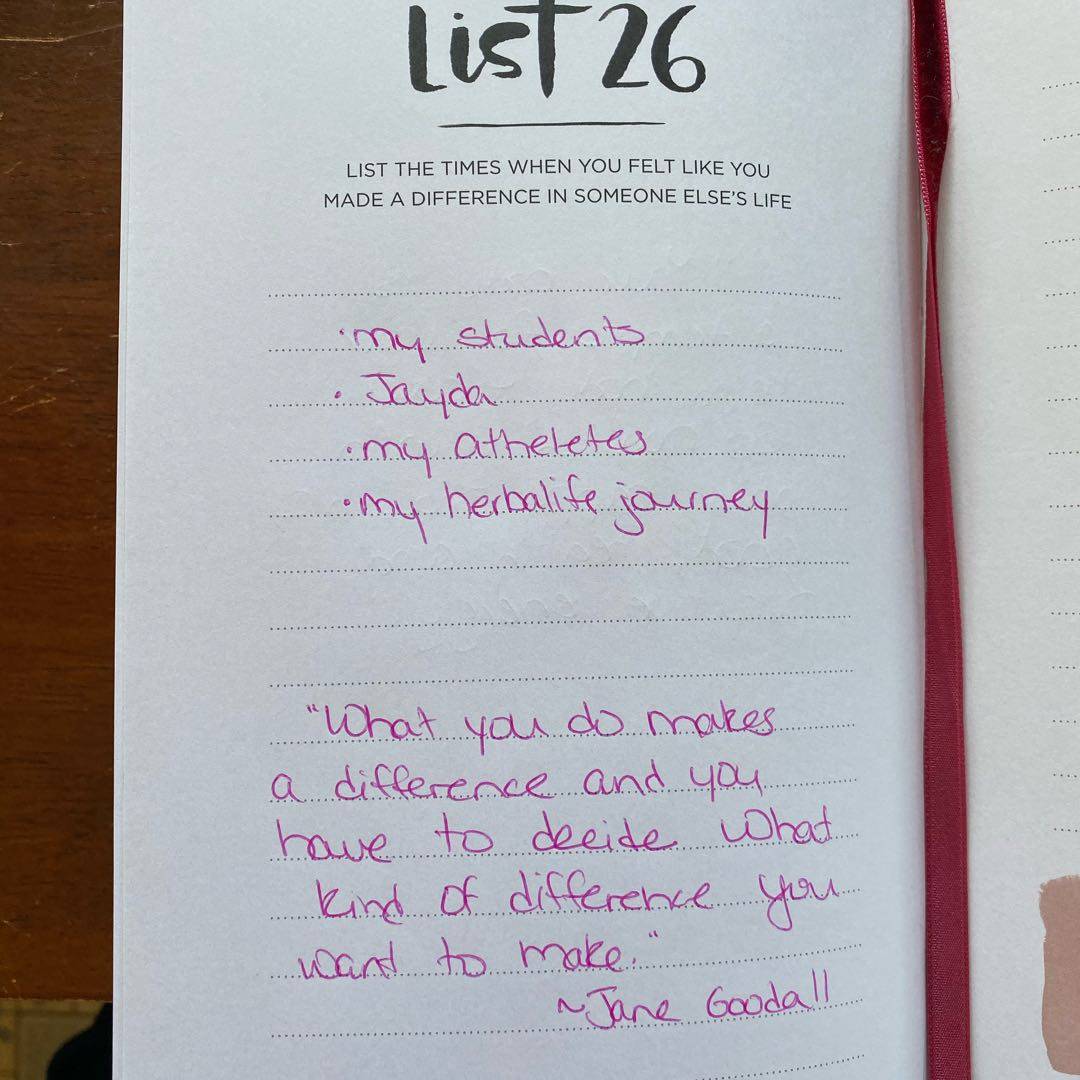 List 26
LIST THE TIMES WHEN YOU FELT LIKE YOU
MADE A DIFFERENCE IN SOMEONE ELSE'S LIFE
• my students
• Jayda
• my atheletes
• my herbalife journey
"What you do makes
a difference and you
have to decide what
kind of difference you
want to make."
~Jane Goodall